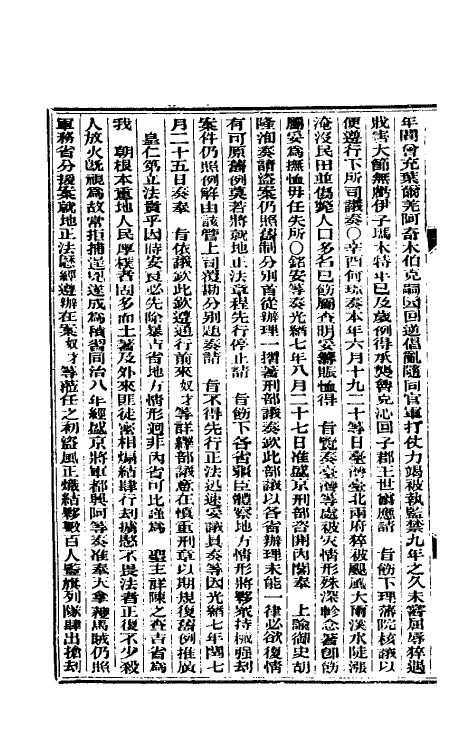 年間曾充葉爾羌阿奇木伯克嗣因回逆倡亂隨同官軍打仗力竭被執監禁九年之久未嘗屈辱猝遇
戕害大節無虧伊子瑪木特早已及歲例得承襲魯克沁回子郡王世爵應請　旨飭下理藩院核議以
便遵行下所司議奏○辛酉何璟奏本年六月十九二十等日臺灣臺北兩府猝被颶風大雨溪水陡漲
淹沒民田並傷斃人口多名已飭屬查明妥籌賑恤得　旨覽奏臺灣等處被災情形殊深軫念著卽飭
屬妥爲撫恤毋任失所○銘安等奏光緒七年八月二十七日准盛京刑部咨開內閣奉　上諭御史胡
隆洵奏請盜案仍照舊制分別首從辦理一摺著刑部議奏欽此欽部議以各省辦理未能一律必欲復情
有可原舊例莫若將就地正法章程先行停止請　旨飭下各省疆臣體察地方情形將夥衆持械强刦
案件仍照例解由該管上司覆勘分別題奏請　旨不得先行正法迅速妥議具奏等因光緒七年閏七
月二十五日奏奉　旨依議欽此欽遵通行前來奴才等詳繹部議意在慎重刑章以期規復舊例推廣
皇仁第立法貴乎因時安良必先除暴吉省地方情形迥非內省可比謹爲　聖主詳陳之查吉省爲
我　朝根本重地人民厚樸者固多而土著及外來匪徒窩相煽結肆行刦擄愍不畏法者正復不少殺
人放火旣視爲故常拒捕逞兇遂成爲積習同治八年經盛京將軍都興阿等奏准奉天拿獲馬賊仍照
軍務省分援案就地正法歷經遵辦在案奴才等蒞任之初盜風正熾結夥數百人竪旗列隊肆出搶刦